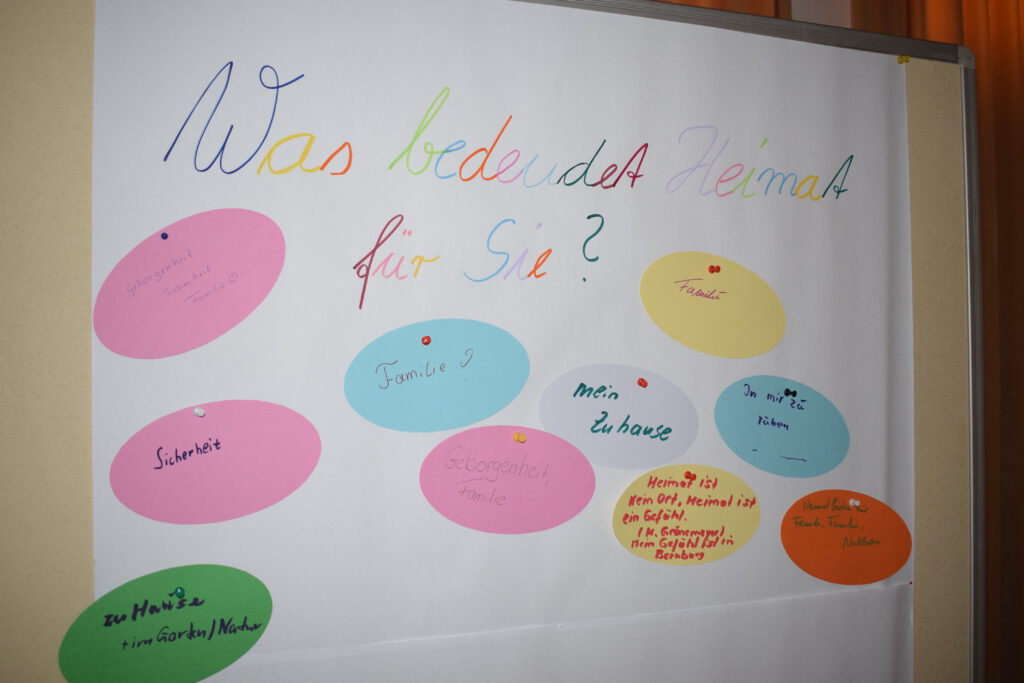 Was bedeudet Heimat
für Sie?
Geborgenheit
Sicherheit
Familie ♡
Familie
Familie
mein
Zuhause
In mir zu
ruhen
Sicherheit
Geborgenheit,
Familie
Heimat ist
kein Ort, Heimat ist
ein Gefühl.
(H. Grönemeyer)
Mein Gefühl ist in
Bernburg
Freunde, Familie,
zu Hause
+ im Garten/Natur